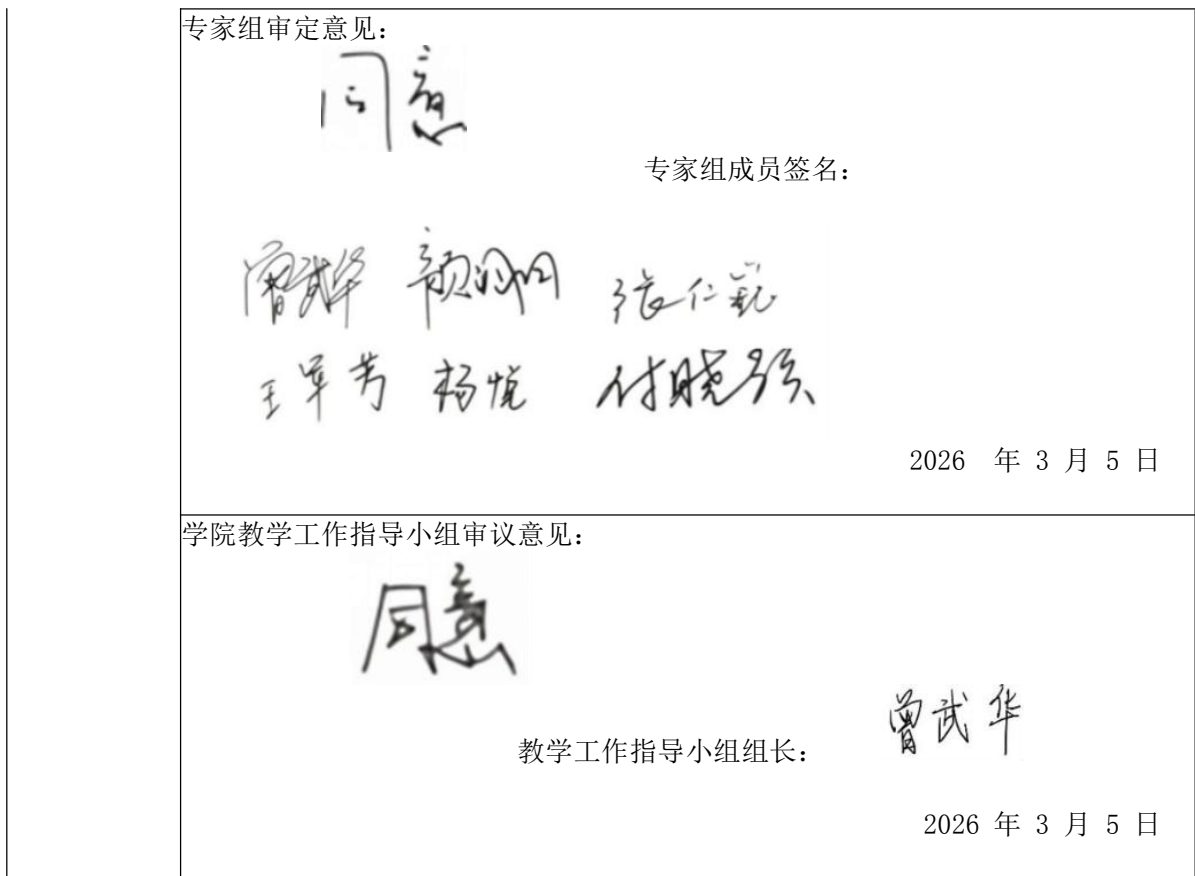 专家组审定意见：
同意
专家组成员签名：
曾武华 张仁巍
王军芳 杨悦 付晓强
2026 年 3 月 5 日
学院教学工作指导小组审议意见：
同意
曾武华
教学工作指导小组组长：
2026 年 3 月 5 日